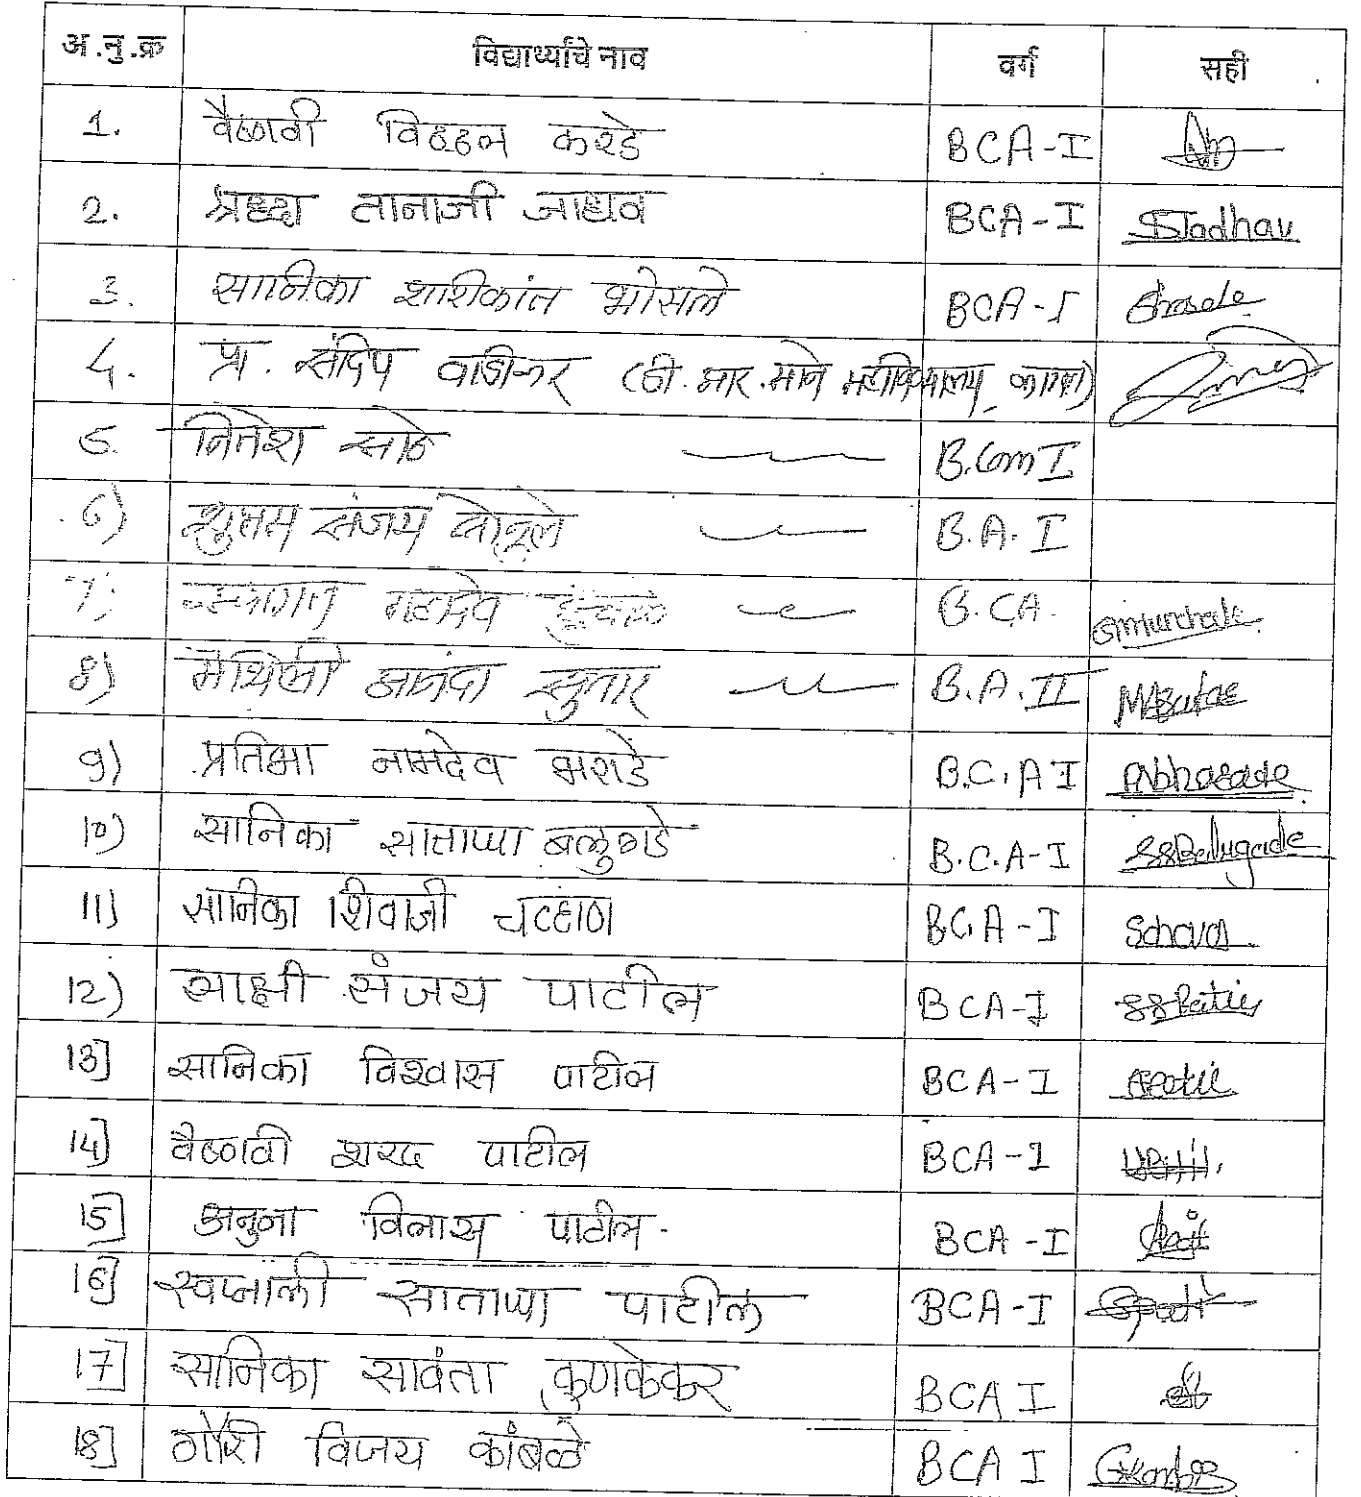 अ.नु.क्र विद्यार्थ्याचे नाव वर्ग सही
1. वैष्णवी विठ्ठल करडे BCA-I
2. श्रद्धा तानाजी जाधव BCA-I SJadhav
3. सानिका शशिकांत भोसले BCA-I Bhosale
4. प्रा. संदिप वाडीकर (डी. आर. माने महाविद्यालय, कागल)
5. नितेश साठे B.Com I
6) शुभम संजय B.A. I
7) महादेव B.CA.
8) मैथिली आनंदा सुतार B.A. II MASutar
9) प्रतिभा नामदेव भराडे B.C.A I PNbharade
10) सानिका साताप्पा बलुगडे B.C.A-I SSBalugade
11) सानिका शिवाजी चव्हाण BCA-I Schavan
12) साक्षी संजय पाटील BCA-I SSPatil
13] सानिका विश्वास पाटील BCA-I SPatil
14] वैष्णवी शरद पाटील BCA-I VPatil.
15] अनुजा विलास पाटील. BCA-I
16] स्वप्नाली साताप्पा पाटील BCA-I
17] सानिका सावंता कुणकेकर BCA I
18] गौरी विजय कांबळे BCA I GKamble